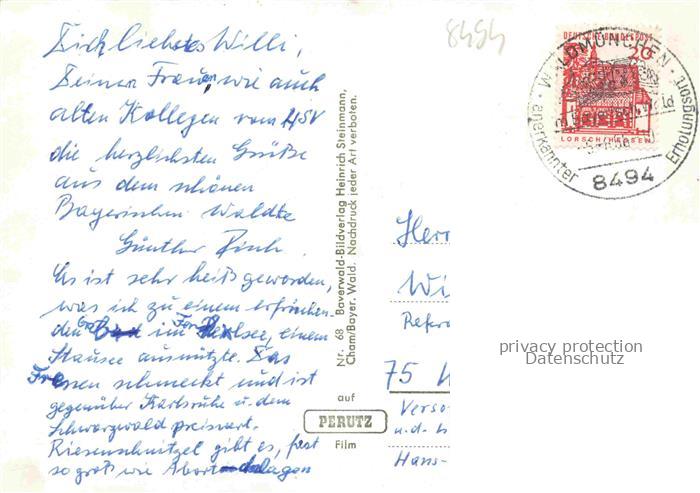 8494
Dich liebstes Willi,
Deinen Frauen, wie auch
alten Kollegen vom HSV
die herzlichsten Grüße
aus dem schönen
Bayerischen Walde
Günther
Es ist sehr heiß geworden,
was ich zu einem erfrischen-
den Bad im einem
Stausee ausnützte. Das
Fressen schmeckt und ist
gegenüber Karlsruhe u. dem
Schwarzwald preiswert.
Riesenschnitzel gibt es, fast
so groß wie Abort
Nr. 68 Bayerwald-Bildverlag Heinrich Steinmann,
Cham/Bayer. Wald. Nachdruck jeder Art verboten.
auf
PERUTZ
Film
DEUTSCHE BUNDESPOST
20
LORSCH/HESSEN
WALDMÜNCHEN
anerkannter Erholungsort
8494
Herr
Wi
Refer
75
Verso
u.d.
Hans-
privacy protection
Datenschutz